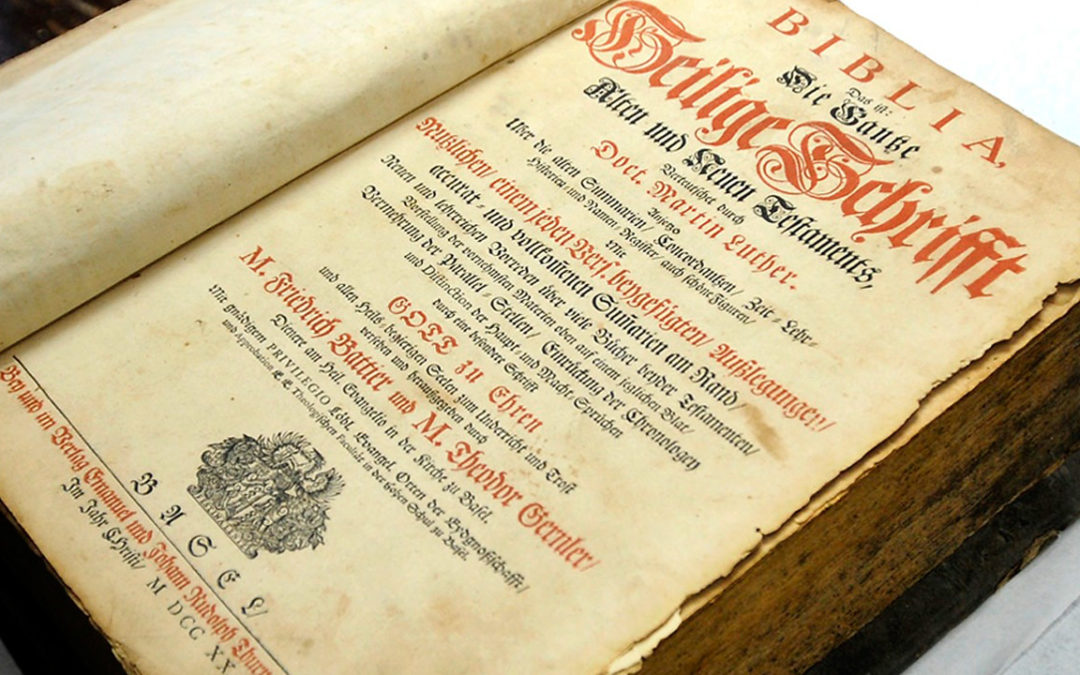 BIBLIA,
Das ist:
Die Gantze
Heilige Schrifft
Alten und Neuen Testaments,
Verteutschet durch
Doct. Martin Luther.
Anjetzo
Uber die alten Summarien/ Concordantzen/ Zeit- Lehr-
Historien und Namen-Register/ auch schöne Figuren/
Mit
Nutzlichen/ einem jeden Vers beygefügten/ Außlegungen/
accurat- und vollkom̄enen Sum̄arien am Rand/
Neuen und lehrreichen Vorreden über viele Bücher beyder Testamenten/
Vorstellung der vornehmsten Materien oben auf einem jeglichen Blat/
Vermehrung der Parallel-Stellen/ Einruckung der Chronologey
und Distinction der Haupt- und Macht-Sprüchen
durch eine besondere Schrifft
GOTT zu Ehren
und allen Heils-begierigen Seelen zum Underricht und Trost
versehen und herausgegeben durch
M. Friedrich Battier und M. Theodor Gernler/
Dienere am Heil. Evangelio in der Kirche zu Basel.
Mit gnädigem PRIVILEGIO Löbl. Evangel. Orten der Eydgnoßschafft/
und Approbation E. E. Theologischen Facultät in der hohen Schul zu Basel.
BASEL/
Bey und in Verlag Emanuel und Johann Rudolph Thurn
Im Jahr Christi/ M DCC XX